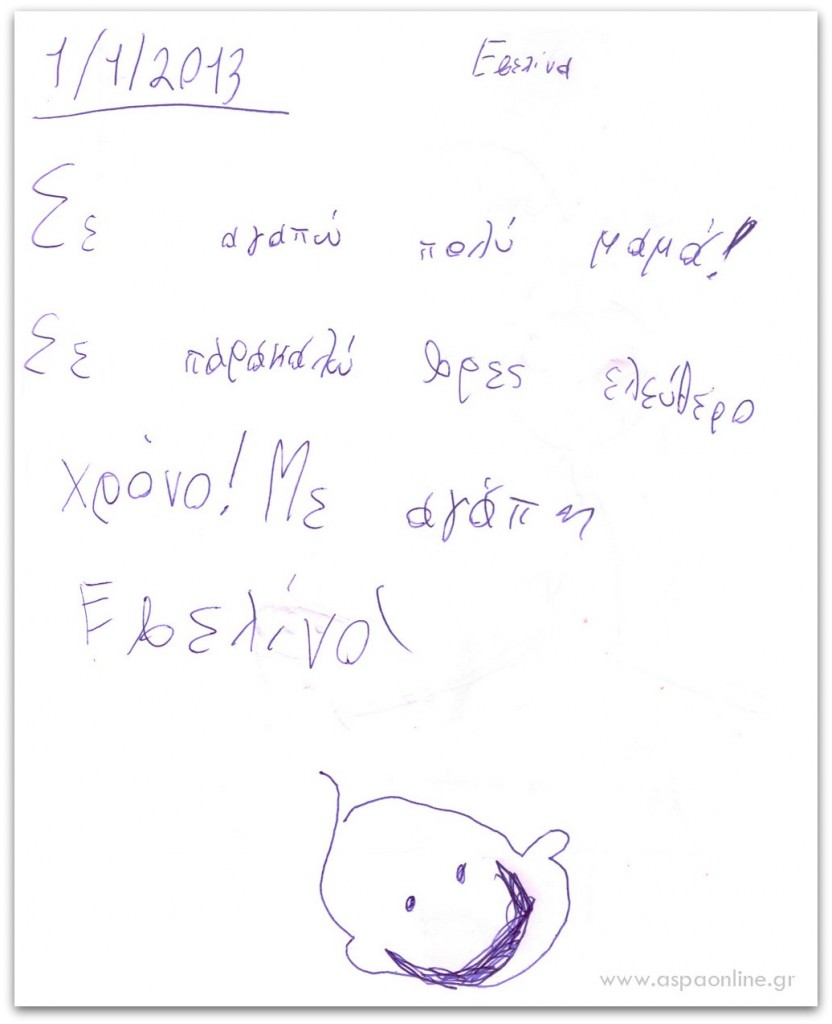 1/1/2013 Εβελίνα
Σε αγαπώ πολύ μαμά!
Σε παρακαλώ βρες ελεύθερο
χρόνο! Με αγάπη
Εβελίνα
www.aspaonline.gr